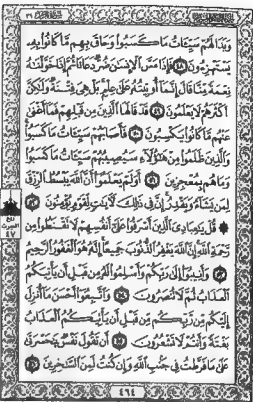 وَبَدَا لَهُمْ سَيِّـَٔاتُ مَا كَسَبُوا۟ وَحَاقَ بِهِم مَّا كَانُوا۟ بِهِۦ
يَسْتَهْزِءُونَ ٤٨ فَإِذَا مَسَّ ٱلْإِنسَٰنَ ضُرٌّ دَعَانَا ثُمَّ إِذَا خَوَّلْنَٰهُ
نِعْمَةً مِّنَّا قَالَ إِنَّمَآ أُوتِيتُهُۥ عَلَىٰ عِلْمٍۭ بَلْ هِىَ فِتْنَةٌ وَلَٰكِنَّ
أَكْثَرَهُمْ لَا يَعْلَمُونَ ٤٩ قَدْ قَالَهَا ٱلَّذِينَ مِن قَبْلِهِمْ فَمَآ أَغْنَىٰ
عَنْهُم مَّا كَانُوا۟ يَكْسِبُونَ ٥٠ فَأَصَابَهُمْ سَيِّـَٔاتُ مَا كَسَبُوا۟
وَٱلَّذِينَ ظَلَمُوا۟ مِنْ هَٰٓؤُلَآءِ سَيُصِيبُهُمْ سَيِّـَٔاتُ مَا كَسَبُوا۟
وَمَا هُم بِمُعْجِزِينَ ٥١ أَوَلَمْ يَعْلَمُوٓا۟ أَنَّ ٱللَّهَ يَبْسُطُ ٱلرِّزْقَ
لِمَن يَشَآءُ وَيَقْدِرُ إِنَّ فِى ذَٰلِكَ لَءَايَٰتٍ لِّقَوْمٍ يُؤْمِنُونَ ٥٢
۞ قُلْ يَٰعِبَادِىَ ٱلَّذِينَ أَسْرَفُوا۟ عَلَىٰٓ أَنفُسِهِمْ لَا تَقْنَطُوا۟ مِن
رَّحْمَةِ ٱللَّهِ إِنَّ ٱللَّهَ يَغْفِرُ ٱلذُّنُوبَ جَمِيعًا إِنَّهُۥ هُوَ ٱلْغَفُورُ ٱلرَّحِيمُ
٥٣ وَأَنِيبُوٓا۟ إِلَىٰ رَبِّكُمْ وَأَسْلِمُوا۟ لَهُۥ مِن قَبْلِ أَن يَأْتِيَكُمُ
ٱلْعَذَابُ ثُمَّ لَا تُنصَرُونَ ٥٤ وَٱتَّبِعُوٓا۟ أَحْسَنَ مَآ أُنزِلَ
إِلَيْكُم مِّن رَّبِّكُم مِّن قَبْلِ أَن يَأْتِيَكُمُ ٱلْعَذَابُ
بَغْتَةً وَأَنتُمْ لَا تَشْعُرُونَ ٥٥ أَن تَقُولَ نَفْسٌ يَٰحَسْرَتَىٰ
عَلَىٰ مَا فَرَّطتُ فِى جَنۢبِ ٱللَّهِ وَإِن كُنتُ لَمِنَ ٱلسَّٰخِرِينَ ٥٦
الحزب
٤٧
٤٦٤